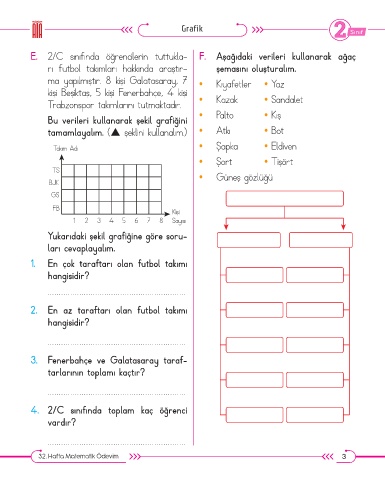 ATA
Grafik
2.
Sınıf
E. 2/C sınıfında öğrencilerin tuttukla-
rı futbol takımları hakkında araştır-
ma yapılmıştır. 8 kişi Galatasaray, 7
kişi Beşiktaş, 5 kişi Fenerbahçe, 4 kişi
Trabzonspor takımlarını tutmaktadır.
Bu verileri kullanarak şekil grafiğini
tamamlayalım. (▲ şeklini kullanalım.)
Takım Adı
TS
BJK
GS
FB
1 2 3 4 5 6 7 8
Kişi
Sayısı
Yukarıdaki şekil grafiğine göre soru-
ları cevaplayalım.
1. En çok taraftarı olan futbol takımı
hangisidir?
2. En az taraftarı olan futbol takımı
hangisidir?
3. Fenerbahçe ve Galatasaray taraf-
tarlarının toplamı kaçtır?
4. 2/C sınıfında toplam kaç öğrenci
vardır?
F. Aşağıdaki verileri kullanarak ağaç
şemasını oluşturalım.
• Kıyafetler • Yaz
• Kazak • Sandalet
• Palto • Kış
• Atkı • Bot
• Şapka • Eldiven
• Şort • Tişört
• Güneş gözlüğü
32. Hafta Matematik Ödevim
3